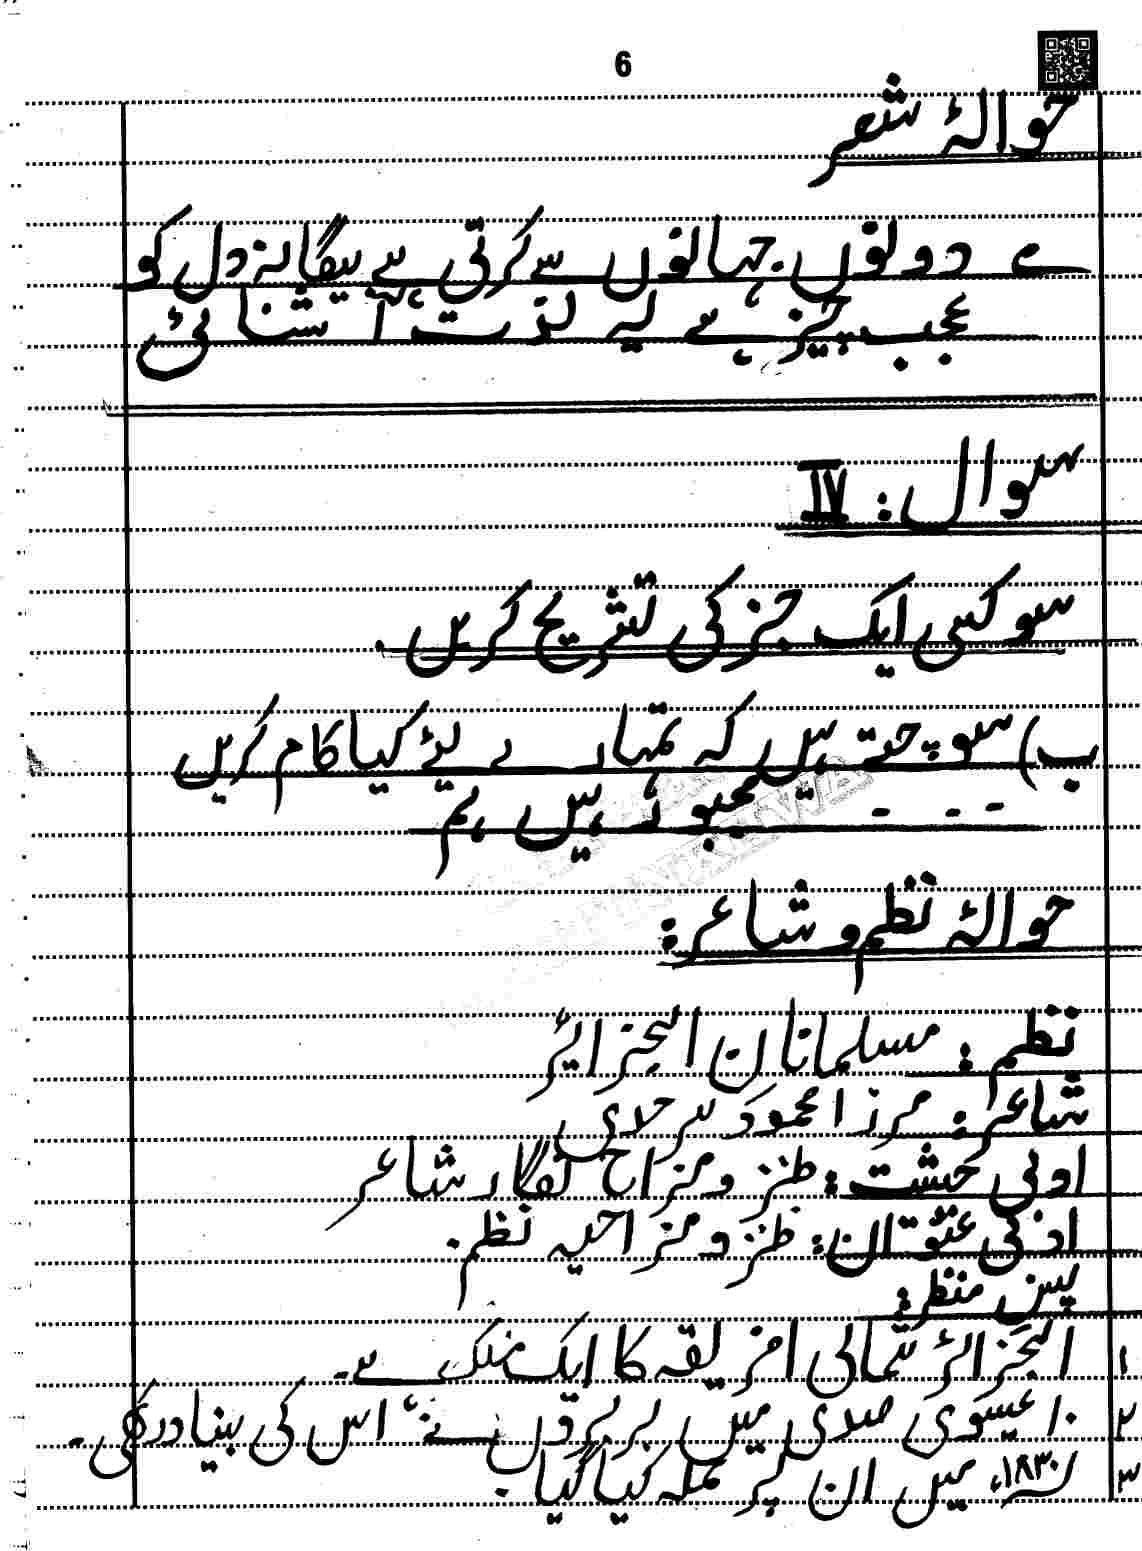 6
حوالۂ شعر
؎ دونوں جہانوں سے کرتی ہے بیگانہ دل کو
عجب چیز ہے یہ لذت آشنائی
سوال: IV
سو کسی ایک جز کی تشریح کریں۔
ب) سوچتے ہیں کہ تمہارے لیئے کیا کام کریں
- - - - مجبور ہیں ہم
حوالۂ نظم و شاعر:
نظم: مسلمانان الجزائر
شاعر: مرزا محمود سرحدی
ادبی حیثیت: طنز و مزاح نگار شاعر
ادبی عنوان: طنز و مزاحیہ نظم۔
پس منظر:
۱ الجزائر شمالی افریقہ کا ایک ملک ہے۔
۲ ۱۰ عیسوی صدی میں بربروں نے اس کی بنیاد رکھی۔
۳ ۱۸۳۰ء میں ان پر حملہ کیا گیا۔